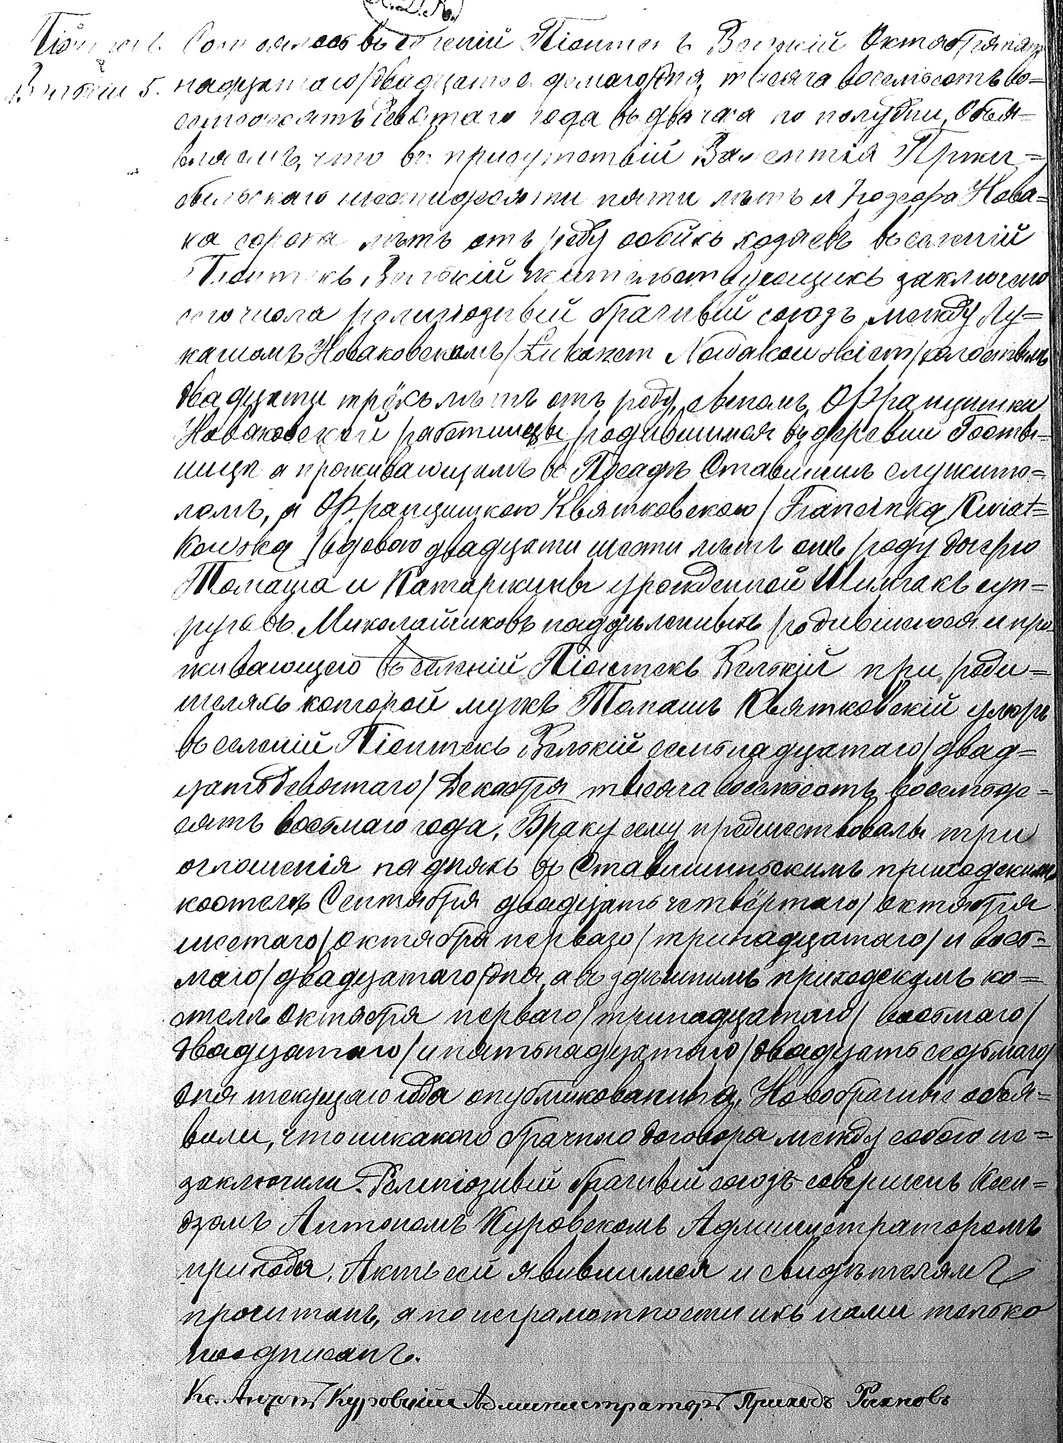 Піонтекъ
Велькій 5.
Состоялось въ селеніи Піонтекъ Велькій Октября пят-
надцатаго /двадцать седьмаго/ дня, тысяча восемьсотъ во-
семьдесятъ девятаго года въ два часа по полудни, Объя-
вляемъ, что въ присутствіи Валентія Пржи-
бельскаго шестидесяти пяти лѣтъ и Іозефа Нова-
ка сорока лѣтъ отъ роду обоихъ хозяевъ въ селеніи
Піонтекъ Велькій жительствующихъ заключенъ
сего числа религіозный брачный союзъ между Лу-
кашомъ Новаковскомъ /Łukaszem Nowakowskiem/ холостымъ
двадцати трёхъ лѣтъ отъ роду, сыномъ Францишки
Новаковской работницы, родившимся въ деревни Гославы-
шицы и проживающимъ въ Посадѣ Ставишинѣ служите-
лемъ, и Францишкою Квятковскою /Franciszką Kwiat-
kowską/ вдовою двадцати шести лѣтъ отъ роду дочерю
Томаша и Катаржины урожденной Шимчакъ суп-
руговъ Миколайчиковъ надѣленныхъ родившеюся и про-
живающею въ селеніи Піонтекъ Велькій при роди-
теляхъ которой мужъ Томашъ Квятковскій умеръ
въ селеніи Піонтекъ Велькій семьнадцатаго /двад-
цать девятаго/ Декабря тысяча восемьсотъ восемьде-
сятъ восьмаго года. Браку сему предшествовали три
оглошенія на дняхъ въ Ставишинскимъ приходскимъ
костелѣ Сентября двадцать четвёртаго /Октября
шестаго/ Октября перваго /тринадцатаго/ и вось-
маго /двадцатаго/ дня, а въ здѣшнимъ приходскомъ ко-
стелѣ Октября перваго /тринадцатаго/ восьмаго /
двадцатаго/ и пятьнадцатаго /двадцать седьмаго/
дня текущаго года опубликованныя. Новобрачные объя-
вили, что никакого брачного договора между собою не-
заключили. Религіозный брачный союзъ совершенъ Ксен-
дзомъ Антономъ Куровскомъ Администраторомъ
прихода. Актъ сей явившимся и свидѣтелямъ
прочитанъ, а по неграмотности ихъ нами только
подписанъ.
Кс. Антонъ Куровскій Администраторъ Приходъ